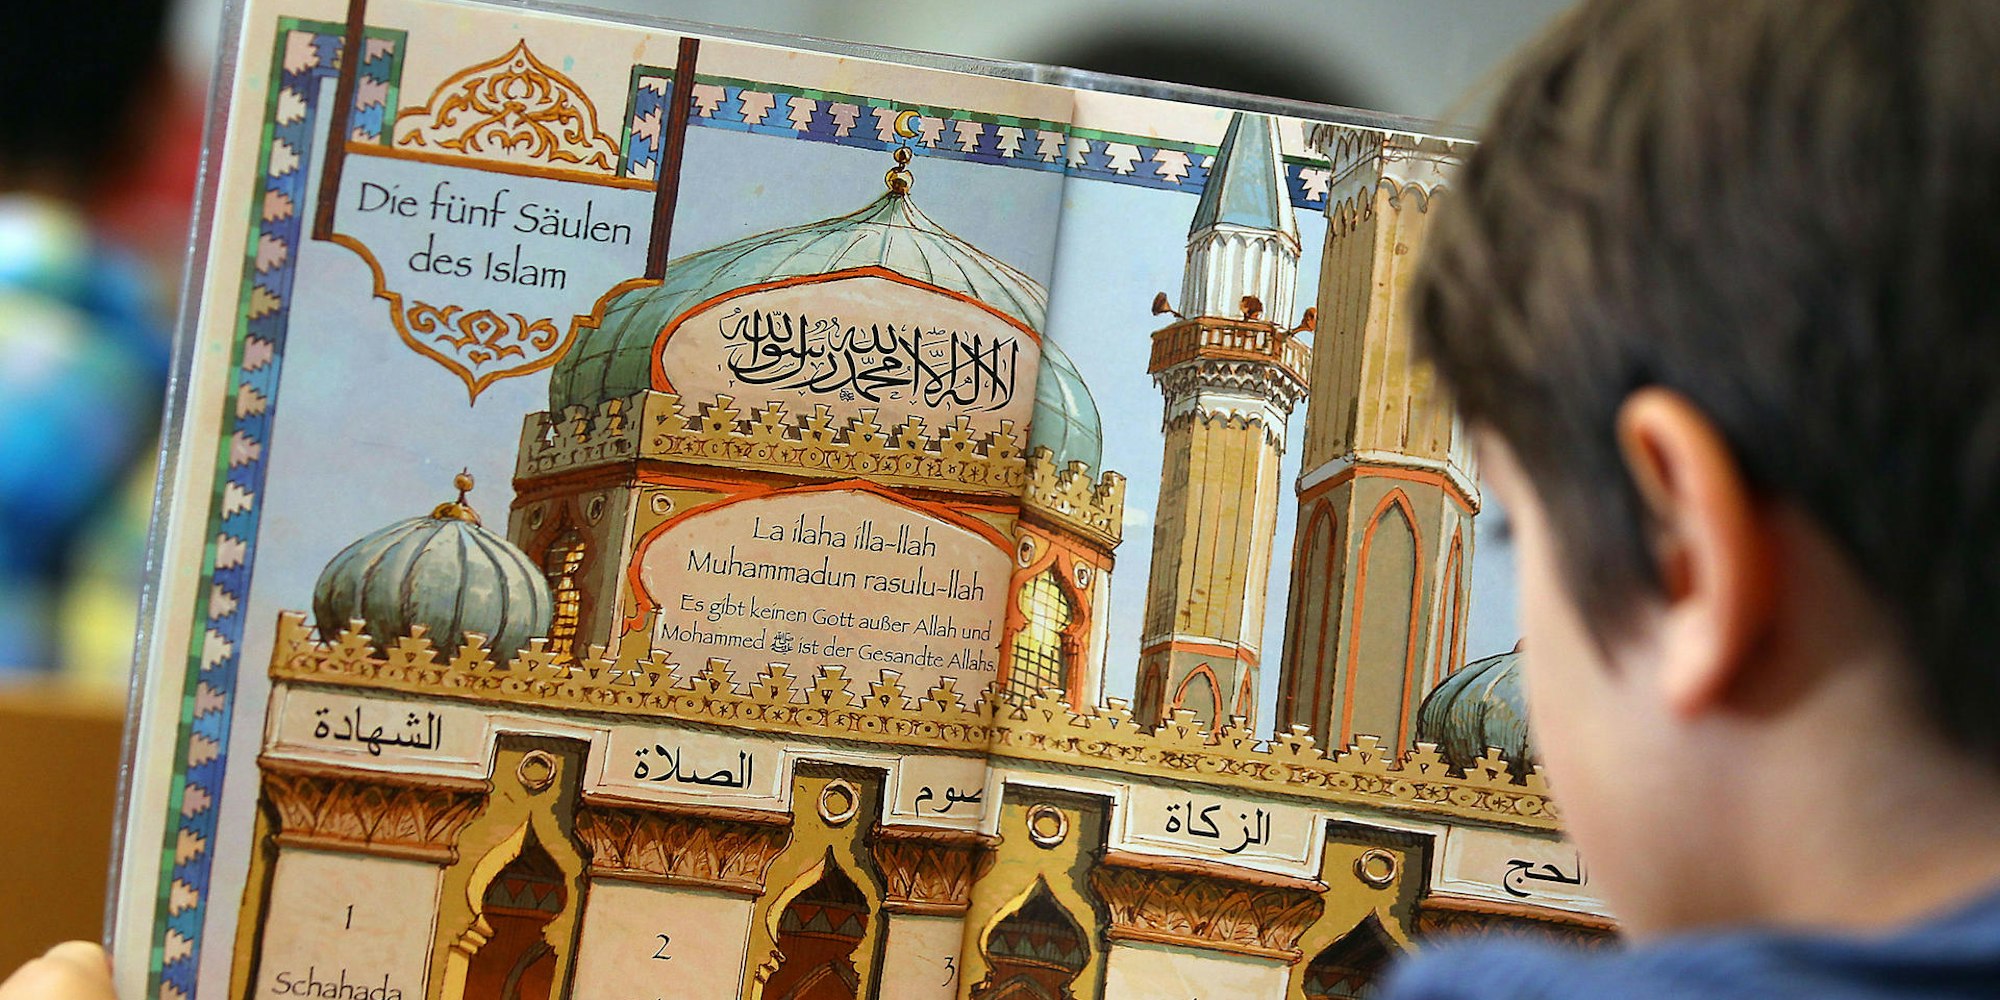 Die fünf Säulen
des Islam
لا اله الا الله محمد رسول الله
La ilaha illa-llah
Muhammadun rasulu-llah
Es gibt keinen Gott außer Allah und
Mohammed ﷺ ist der Gesandte Allahs.
الشهادة
الصلاة
صوم
الزكاة
الحج
1
2
3
Schahada